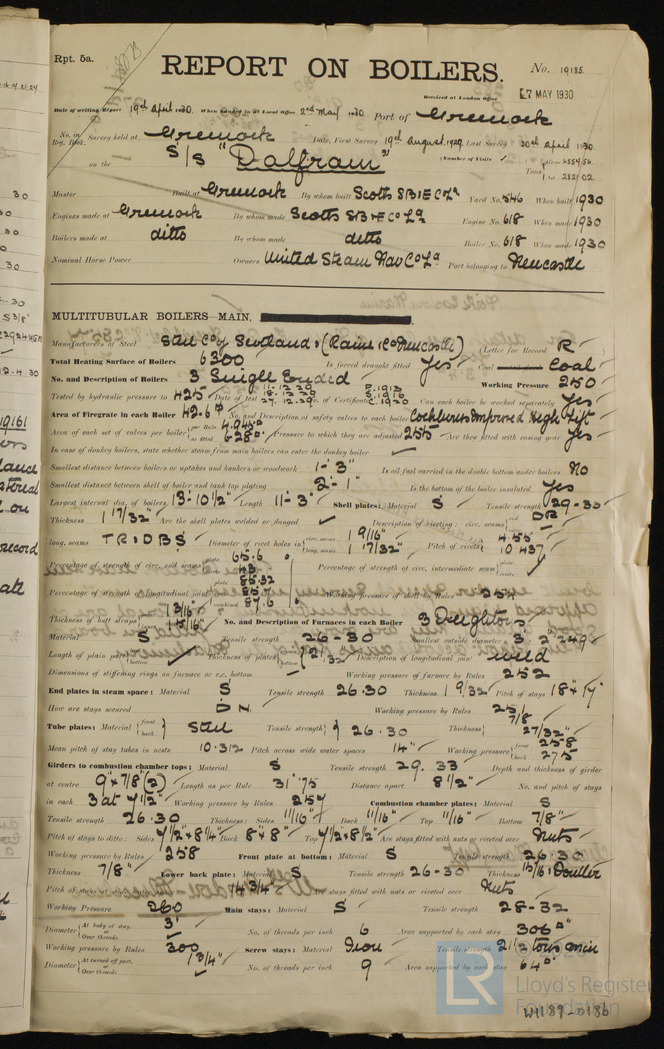 Rpt. 5a.
REPORT ON BOILERS.
No. 19185
Received at London Office 7 MAY 1930
Date of writing Report 19th April 1930. When handed in at Local Office 2nd May 1930 Port of Greenock
No. in Reg. Book. Survey held at Greenock Date, First Survey 19th August, 1929. Last Survey 30th April 1930.
on the S/S "Dalfram" (Number of Visits Tons
Master Built at Greenock By whom built Scotts S.B. & E Co Ld Yard No. 546 When built 1930
Engines made at Greenock By whom made Scotts S.B. & E Co Ld Engine No. 618 When made 1930
Boilers made at ditto By whom made ditto Boiler No. 618 When made 1930
Nominal Horse Power Owners United Steam Nav Co Ld Port belonging to Newcastle
MULTITUBULAR BOILERS—MAIN,
Manufacturers of Steel Steel Co of Scotland, (Raine & Co Newcastle) (Letter for Record R
Total Heating Surface of Boilers 6300 Is forced draught fitted Yes Coal Coal
No. and Description of Boilers 3 Single Ended Working Pressure 250
Tested by hydraulic pressure to 425 Date of test No. of Certificate Can each boiler be worked separately Yes
Area of Firegrate in each Boiler 42.6 No. and Description of safety valves to each boiler Cockburns Improved High Lift
Area of each set of valves per boiler per Rule 4.945 as fitted 6.280 Pressure to which they are adjusted 255 Are they fitted with easing gear Yes
In case of donkey boilers, state whether steam from main boilers can enter the donkey boiler ✓
Smallest distance between boilers or uptakes and bunkers or woodwork 1'-3" Is oil fuel carried in the double bottom under boilers No
Smallest distance between shell of boiler and tank top plating 2'-1" Is the bottom of the boiler insulated Yes
Largest internal dia. of boilers 13'-10 1/2" Length 11'-3" Shell plates: Material S Tensile strength 29-33
Thickness 1 17/32" Are the shell plates welded or flanged ✓ Description of riveting: circ. seams DR
long. seams TRIDBS Diameter of rivet holes in circ. seams 1 9/16" long. seams 1 17/32" Pitch of rivets 4.55 10.437
Percentage of strength of circ. end seams plate 65.6 rivets 43 Percentage of strength of circ. intermediate seam ✓
Percentage of strength of longitudinal joint plate 85.32 rivets 85 combined 87.6 Working pressure of shell by Rules 254
Thickness of butt straps 1 3/16" 1 5/16" No. and Description of Furnaces in each Boiler 3 Deightons
Material S Tensile strength 26-30 Smallest outside diameter 3'-2.249"
Length of plain part bottom ✓ Thickness of plates bottom 21/32 Description of longitudinal joint weld
Dimensions of stiffening rings on furnace or c.c. bottom Working pressure of furnace by Rules 252
End plates in steam space: Material S Tensile strength 26.30 Thickness 1 9/32" Pitch of stays 18 x 17"
How are stays secured D N Working pressure by Rules 251
Tube plates: Material front back Steel Tensile strength 26.30 Thickness 7/8" 27/32"
Mean pitch of stay tubes in nests 10.312 Pitch across wide water spaces 14" Working pressure front 258 back 275
Girders to combustion chamber tops: Material S Tensile strength 29.33 Depth and thickness of girder
at centre 9" x 7/8" (2) Length as per Rule 31".75 Distance apart 8 1/2" No. and pitch of stays
in each 3 at 7 1/2" Working pressure by Rules 257 Combustion chamber plates: Material S
Tensile strength 26.30 Thickness: Sides 11/16" Back 11/16" Top 11/16" Bottom 7/8"
Pitch of stays to ditto: Sides 7 1/2 x 8 1/4" Back 8" x 8" Top 7 1/2 x 8 1/2" Are stays fitted with nuts or riveted over Nuts
Working pressure by Rules 258 Front plate at bottom: Material S Tensile strength 26-30
Thickness 7/8" Lower back plate: Material S Tensile strength 26-30 Thickness 15/16"
Pitch of stays at 14 3/4" Are stays fitted with nuts or riveted over Nuts
Working Pressure 260 Main stays: Material S Tensile strength 28-32
Diameter At body of stay, or Over threads 3" No. of threads per inch 6 Area supported by each stay 306
Working pressure by Rules 300 Screw stays: Material Iron Tensile strength 21 1/2 tons min
Diameter At turned off part, or Over threads 1 3/4" No. of threads per inch 9 Area supported by each stay 64
LR
Lloyd's Register Foundation
W1189-0186